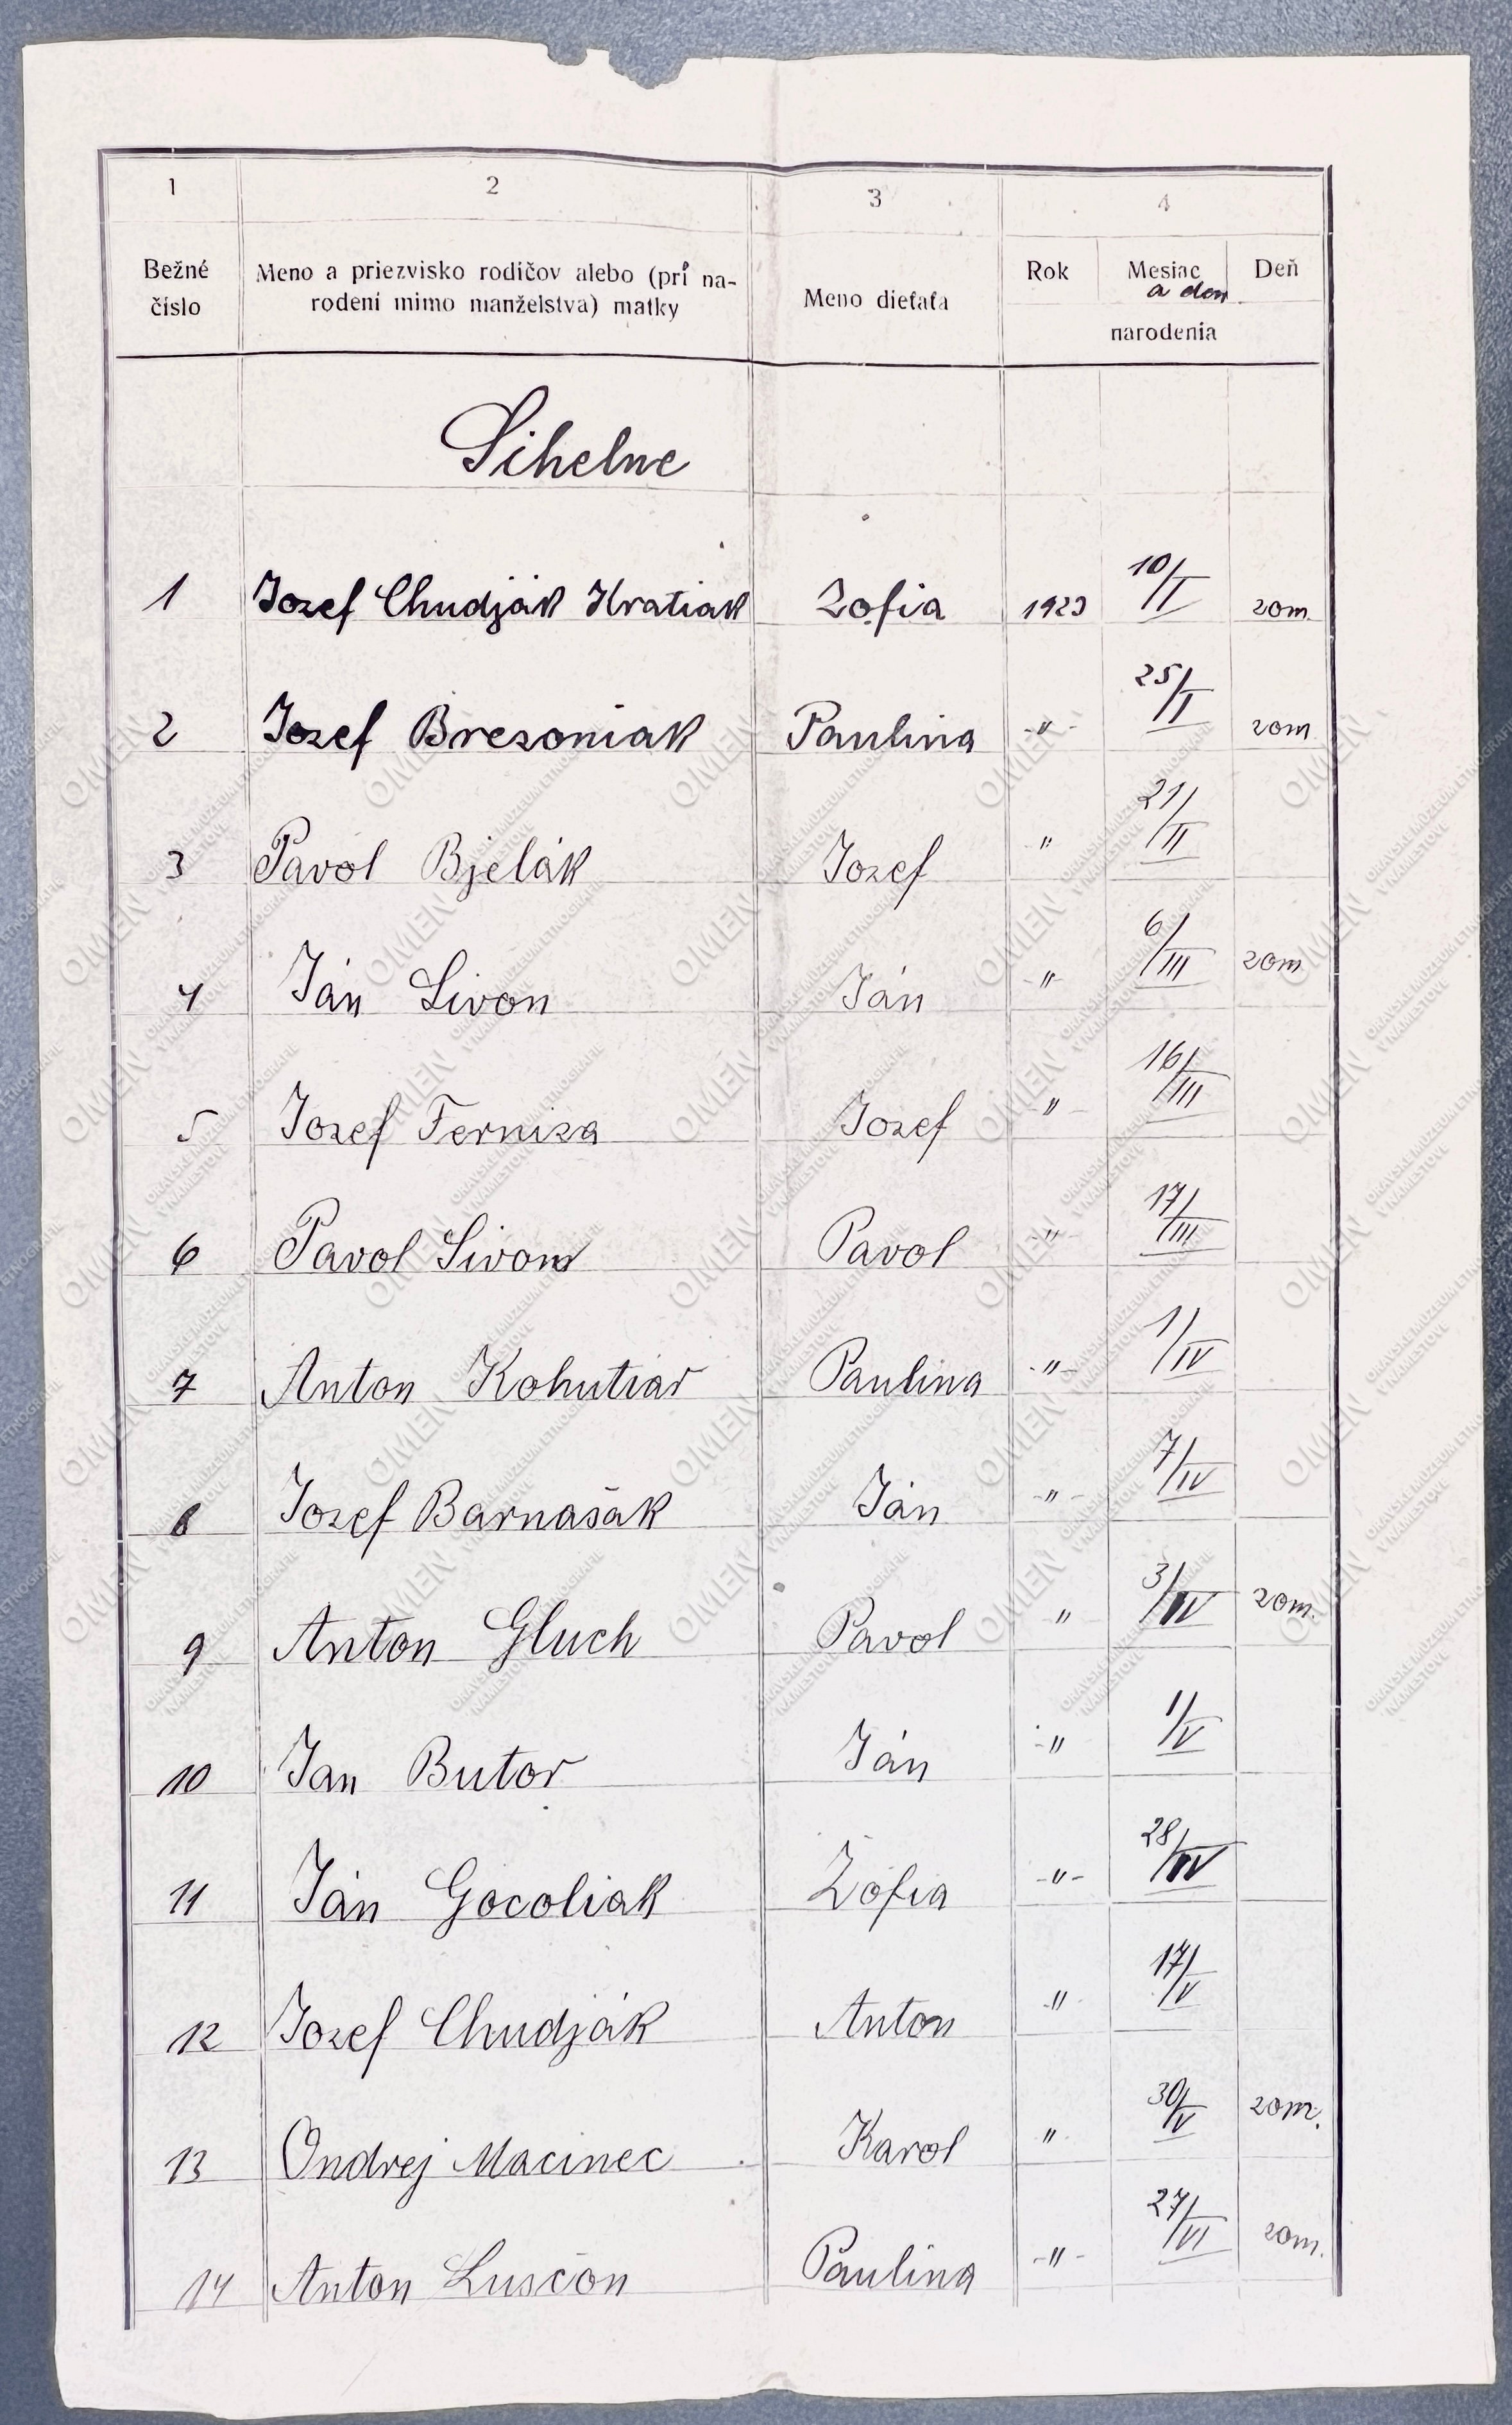 1 2 3 4
Bežné číslo
Meno a priezvisko rodičov alebo (pri na-
rodení mimo manželstva) matky
Meno dieťaťa
Rok Mesiac Deň
a den
narodenia
Sihelne
1 Jozef Chudják Kratiak Žofia 1923 10/I zom.
2 Jozef Brezoniak Paulina -"- 25/I zom
3 Pavol Bjelák Jozef " 21/II
4 Ján Sivon Ján -"- 6/III zom
5 Jozef Ferniza Jozef -"- 16/III
6 Pavol Sivon Pavol -"- 17/III
7 Anton Kohutiar Paulina -"- 1/IV
8 Jozef Barnašák Ján -"- 7/IV
9 Anton Gluch Pavol " 3/IV zom.
10 Jan Butor Ján -" 1/V
11 Ján Gocoliak Žofia -"- 28/IV
12 Jozef Chudják Anton -"- 17/V
13 Ondrej Macinec Karol " 30/V zom.
14 Anton Luscoň Paulina -"- 27/VI zom.
OMEN
ORAVSKE MUZEUM ETNOGRAFIE
V NAMESTOVE